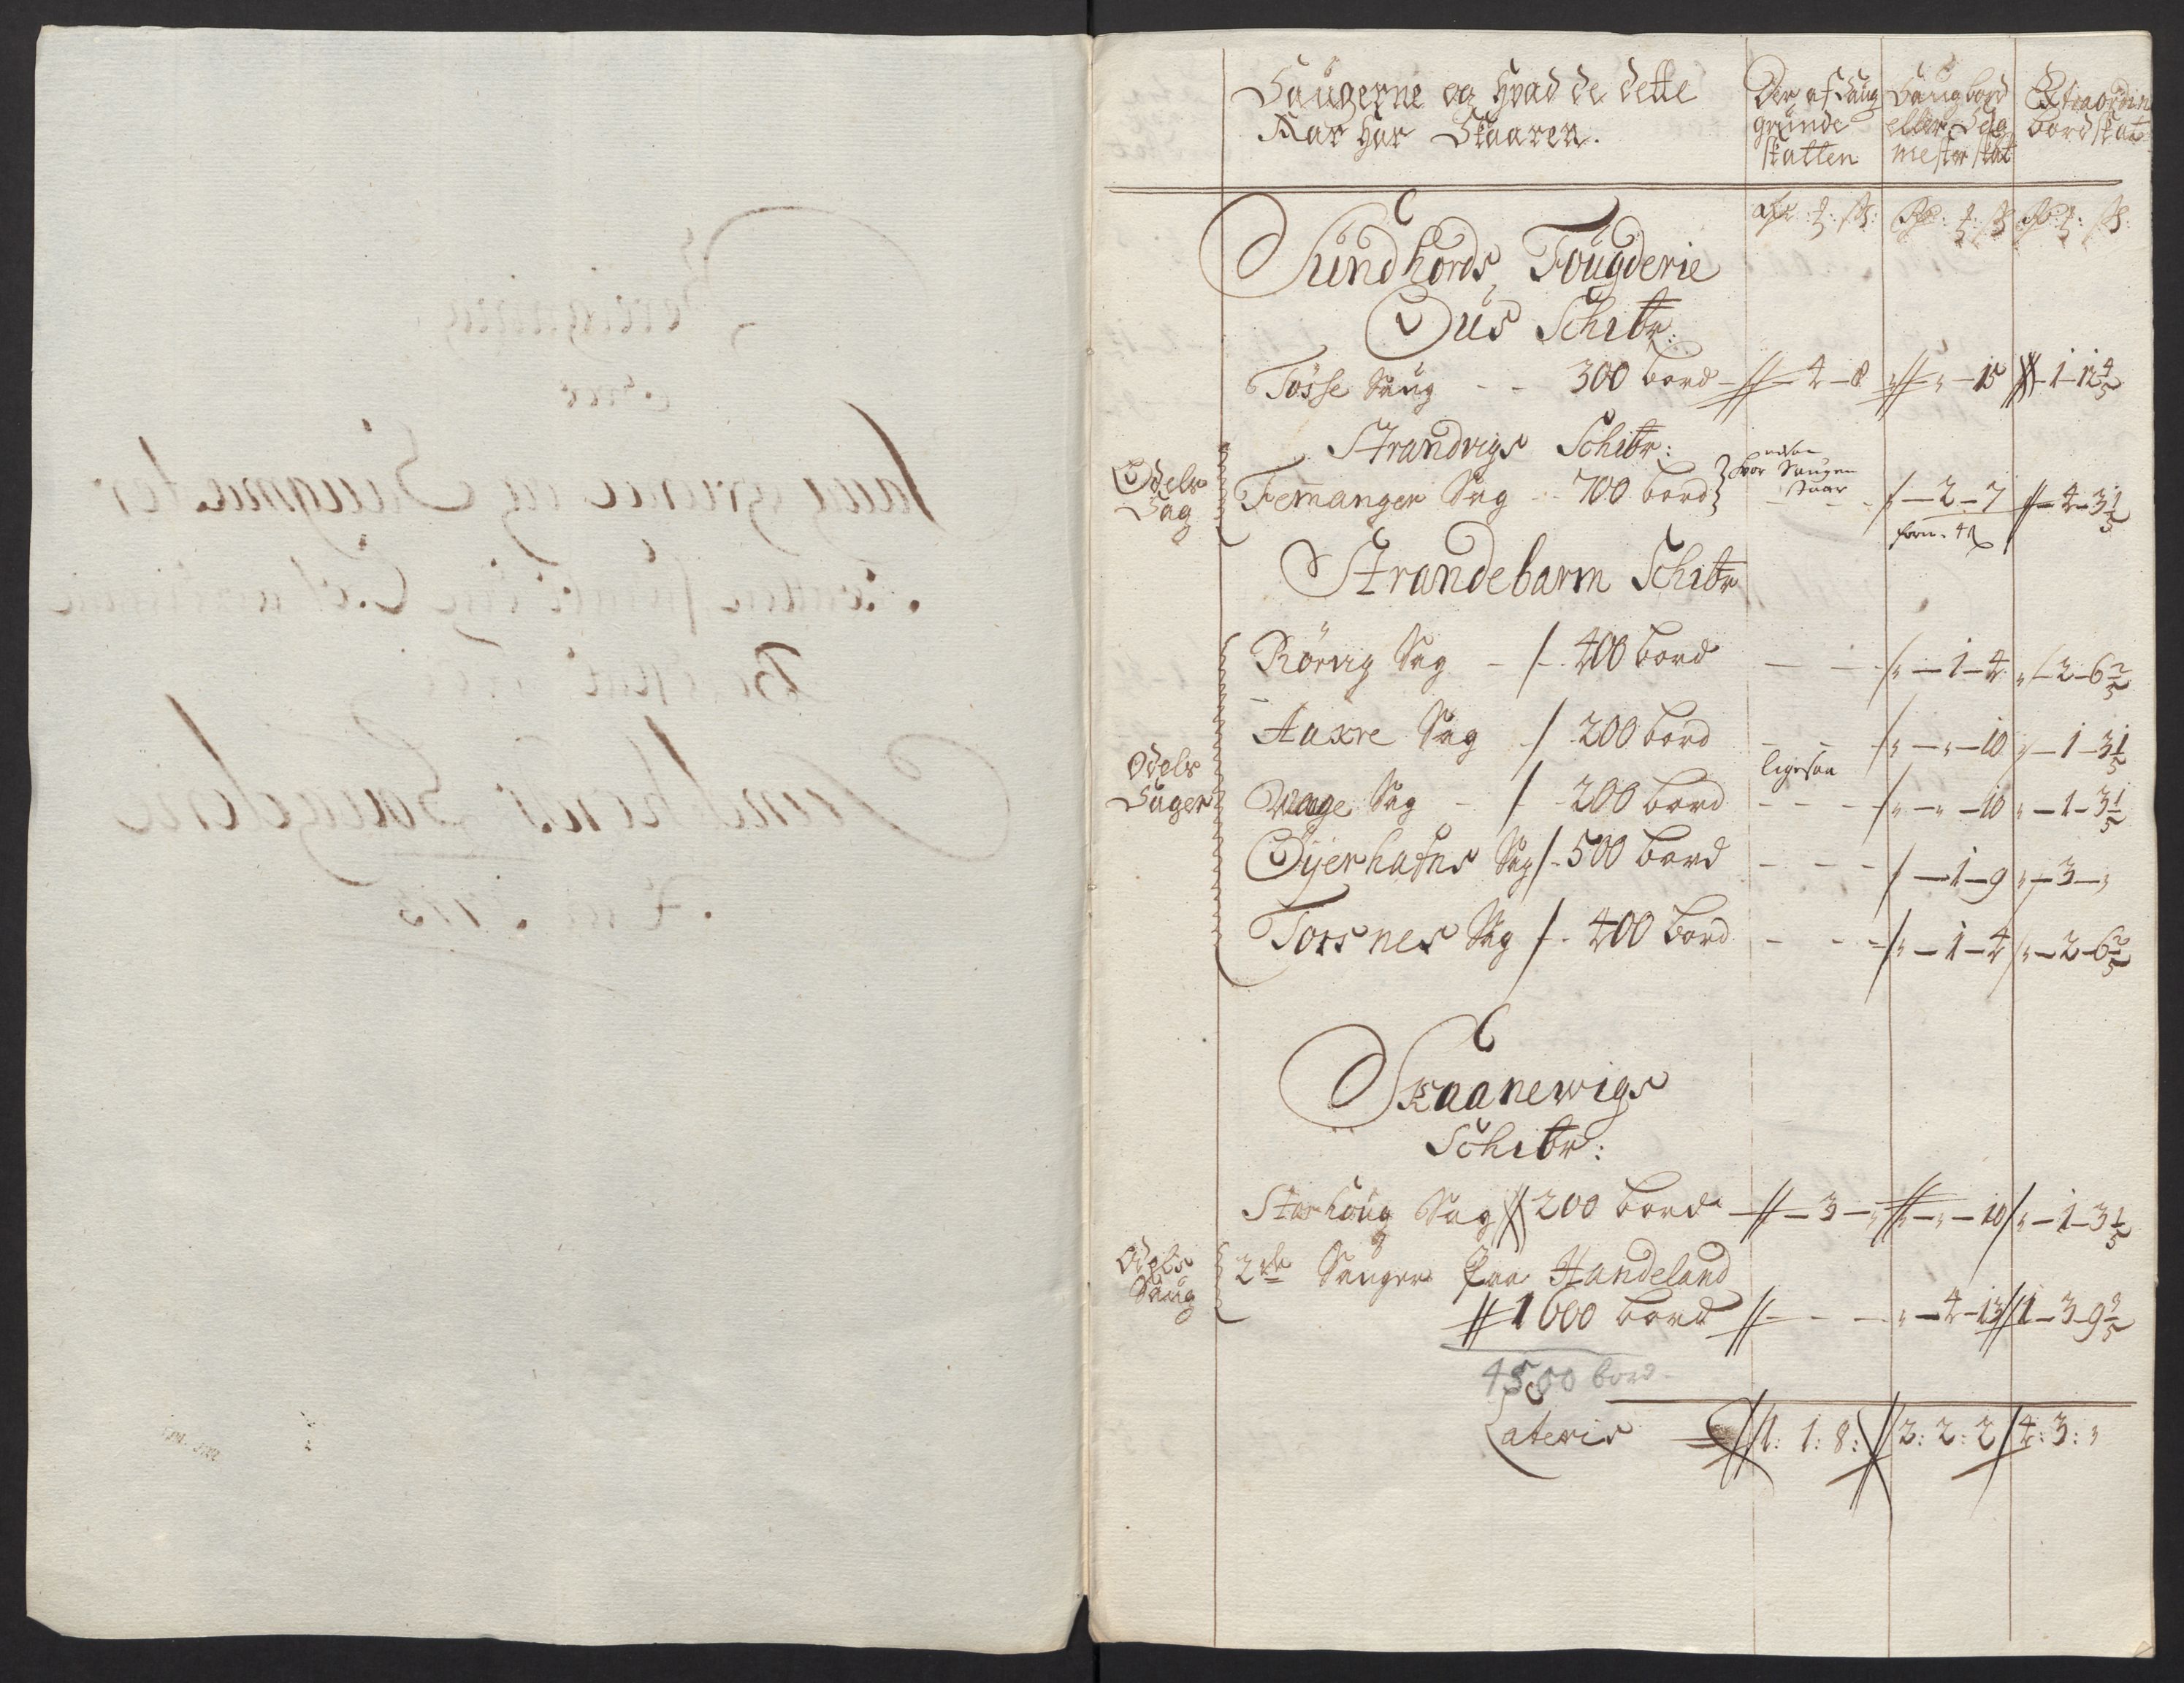 Saugerne og Hvad de dette
Aar Har Skaaren.
Der af Saug
grunde
skatten
Saugbord
eller Sag
mester skat
Extraordin
bord skat
Sundhords Fougderie
Öus Schibr:
Tösse Saug - - 300 bord - 4 - 8 " - " - 15 - 1 - 12 4/5
Strandvigs Schibr:
Odels
Sag
Femanger Sag - 700 bord
hvor Saugen
staar
- 2 - 7 - 4 - 3 1/5
Strandebarm Schibr
Rörvig Sag - 400 bord - - " - 1 - 4 " - 2 - 6 2/5
Aaxre Sag 200 bord - - " - " - 10 " - 1 - 3 1/5
Odels
Sauger
ligesaa
Waage Sag - 200 bord - - - " - " - 10 " - 1 - 3 1/5
Öyerhafns Sag - 500 bord - - - - 1 - 9 " - 3 - "
Torsnes Sag - 400 bord - - - " - 1 - 4 " - 2 - 6 2/5
Skaanewigs
Schibr:
Starhoug Sag 200 bord - 3 - " " - " - 10 " - 1 - 3 1/5
Odels
Saug
2de Sauger paa Handeland
1600 bord - - - " - 4 - 13 1 - 3 - 9 3/5
4500 bord
Lateris 1: 1: 8: 2: 2: 2 4: 3: "